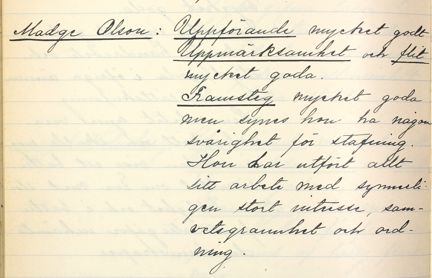 Madge Olson: Uppförande mycket godt
Uppmärksamhet och flit
mycket goda.
Framsteg mycket goda
men synes hon ha någon
svårighet för stafning.
Hon har utfört allt
sitt arbete med synnerli-
gen stort intresse, sam-
vetsgrannhet och ord-
ning.